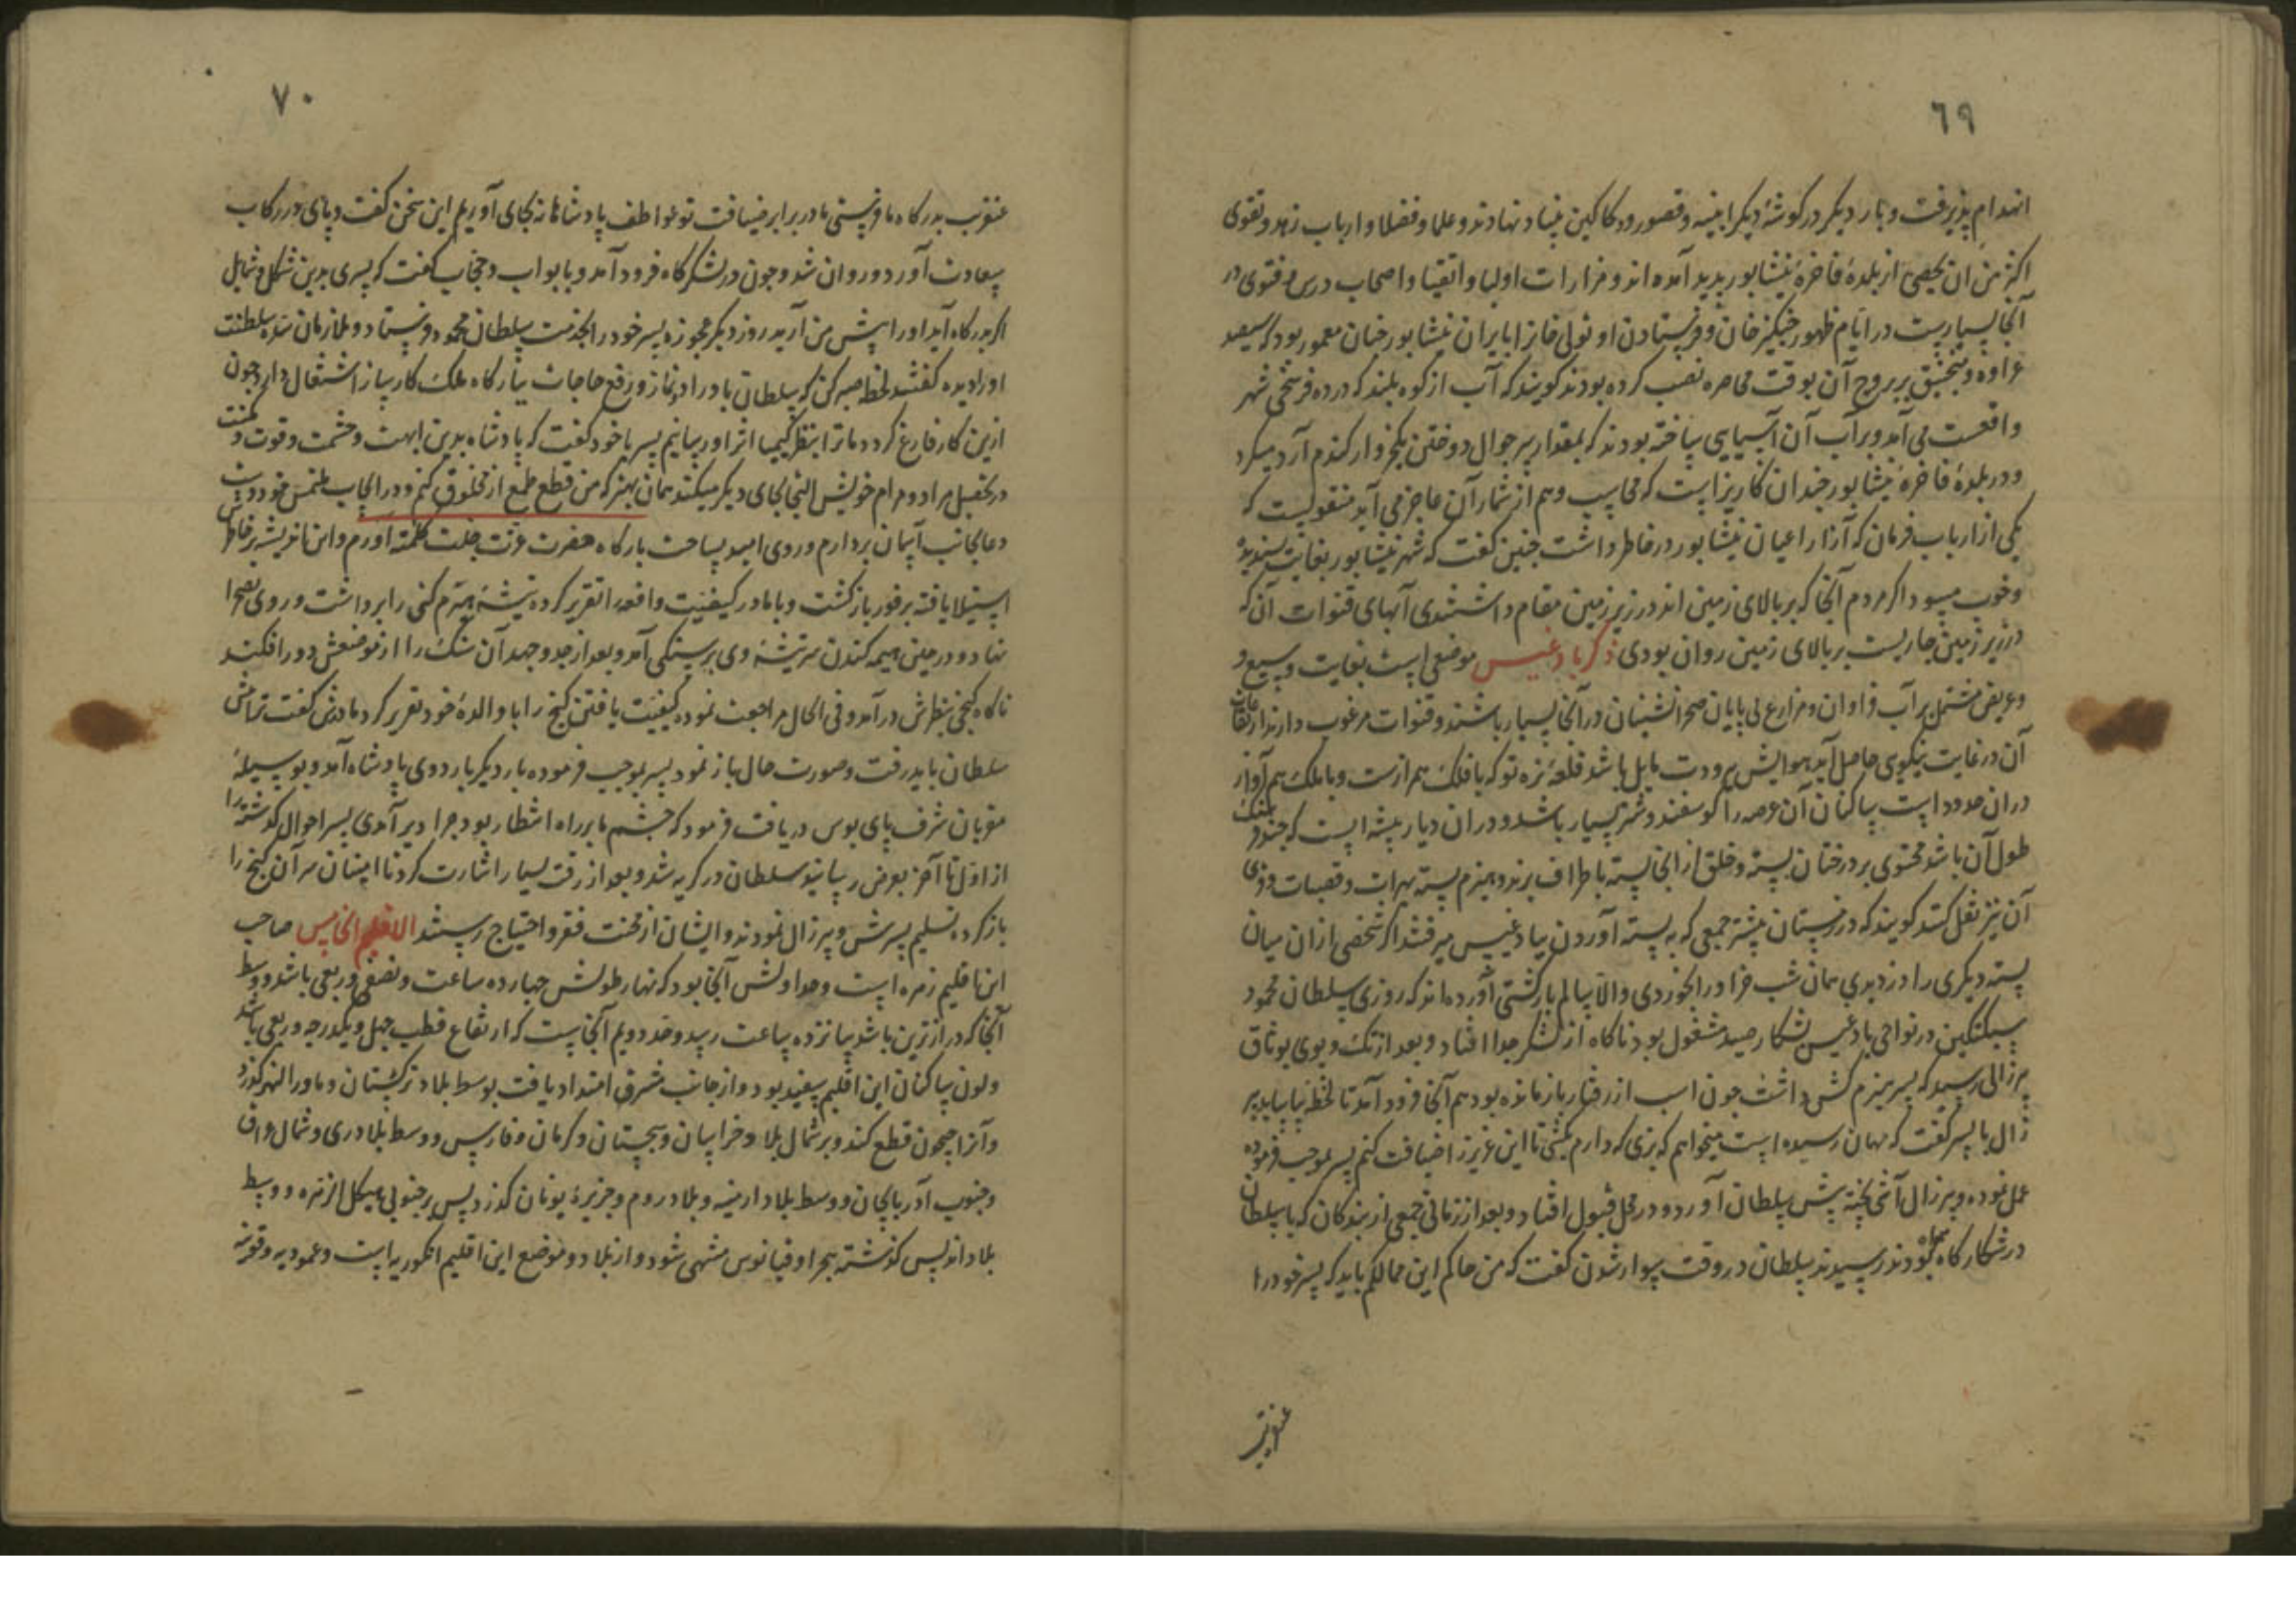 ٦٩
انهدام پذیرفت و بار دیکر در کوشهٔ دیکر ابنیه و قصور و دکاکین بنیاد نهادند و علما و فضلا و ارباب زهد و تقوی
اکثر من ان یحصی از بلدهٔ فاخرهٔ نیشابور پدید آمده اند و مزارات اولیا و اتقیا و اصحاب درس و فتوی در
آنجا بسیارست در ایام ظهور چنکیز خان و فرستادن او تولی خانرا بایران نیشابور چنان معمور بود که سیصد
عراده و منجنیق بر بروج آن بوقت محاصره نصب کرده بودند کویند که آب از کوه بلند که در ده فرسخی شهر
واقعست می آمد و بر آب آن آسیایی ساخته بودند که بمقدار سر جوال دوختن یکخروار کندم آرد میکرد
و در بلدهٔ فاخرهٔ نیشابور چندان کاریز است که محاسب وهم از شمار آن عاجز می آید منقولست که
یکی از ارباب فرمان که آزار اعیان نیشابور در خاطر داشت چنین کفت که شهر نیشابور بغایت پسندیده
و خوب میبود اکر مردم آنجا که بر بالای زمین اند در زیر زمین مقام داشتندی آبهای قنوات آن که
در زیر زمین جاریست بر بالای زمین روان بودی ذکر بادغیس موضعی است بغایت وسیع و
و عریض مشتمل بر آب فراوان و مزارع بی پایان صحرانشینان در آنجا بسیار باشند و قنوات مرغوب دارند ارتفاعات
آن در غایت نیکویی حاصل آید هوایش ببرودت مایل باشد قلعهٔ نره تو که با فلک هم رازست و با ملک هم آواز
دران حدود است ساکنان آن عرصه را کوسفند و شتر بسیار باشد و در ان دیار بیشه ایست که چند فرسنک
طول آن باشد محتوی بر درختان پسته و خلق از انجا پسته باطراف برند و هیزم پسته بهرات و قصبات و قرای
آن نیز نقل کنند کویند که در زمستان بیشتر جمعی که به پسته آوردن ببادغیس میرفتند اکر شخصی ازان میان
پسته دیکری را دزدیدی همان شب خرا اورا بخوردی و الا سالم بازکشتی آورده اند که روزی سلطان محمود
سبکتکین در نواحی بادغیس بشکار صید مشغول بود ناکاه از لشکر جدا افتاد و بعد از تک و پوی بوثاق
پیرزالی رسید که پسر هیزم کشی داشت چون اسب از رفتار باز مانده بود هم آنجا فرود آمد تا لحظهٔ بیاساید پیر
زال با پسر کفت که مهمان رسیده است میخواهم که بزی که دارم بکشی تا این عزیز را ضیافت کنم پسر بموجب فرموده
عمل نموده و پیرزال آشی پخته پیش سلطان آورد و در محل قبول افتاد و بعد از زمانی جمعی از بندکان که با سلطان
در شکارکاه همراه بودند رسیدند سلطان در وقت سوار شدن کفت که من حاکم این ممالکم باید که پسر خود را
عنقریب
٧٠
عنقریب بدرکاه ما فرستی تا در برابر ضیافت تو عواطف پادشاهانه بجای آوریم این سخن کفت و پای در رکاب
سعادت آورد و روان شد و چون در لشکرکاه فرود آمد و با بواب و حجاب کفت که پسری بدین شکل و شمایل
اکر بدرکاه آید اورا پیش من آرید روز دیکر عجوزه پسر خود را بخدمت سلطان محمود فرستاد و ملازمان سدهٔ سلطنت
اورا دیده کفتند لحظهٔ صبر کن که سلطان باوراد و نماز و رفع حاجات ببارکاه ملک کارساز اشتغال دارد چون
ازین کار فارغ کردد ما ترا بنظر کیمیا اثر او رسانیم پسر با خود کفت که پادشاه بدین ابهت و حشمت و قوت و مکنت
در تحصیل مراد و مرام خویش التجا بجای دیکر میکند همان بهتر که من قطع طمع از مخلوق کنم و در انجاب ملتمس خود دست
دعا بجانب آسمان بردارم و روی امید بساحت بارکاه حضرت عزت جلت کلمته آورم و این اندیشه بر خاطرش
استیلا یافته بر فور بازکشت و با مادر کیفیت واقعه را تقریر کرده تیشهٔ هیزم کنی را برداشت و روی بصحرا
نهاد و در حین هیمه کندن سر تیشهٔ وی بر سنکی آمد و بعد از جد و جهد آن سنک را از موضعش دور افکند
ناکاه کنجی بنظرش درآمد و فی الحال مراجعت نموده کیفیت یافتن کنج را با والدهٔ خود تقریر کرد مادرش کفت ترا پیش
سلطان باید رفت و صورت حال باز نمود پسر بموجب فرموده بار دیکر باردوی پادشاه آمد و بوسیلهٔ
مقربان شرف پای بوس دریافت فرمود که چشم ما بر راه انتظار بود چرا دیر آمدی پسر احوال کذشته را
از اول تا آخر بعرض رسانید سلطان در کریه شد و بعد از رقت بسیار اشارت کرد تا امینان سر آن کنج را
باز کرده تسلیم پسرش و پیرزال نمودند و ایشان از محنت فقر و احتیاج رستند الاقلیم الخامس صاحب
این اقلیم زهره است و حد اولش آنجا بود که نهار طولش چهارده ساعت و نصفی و ربعی باشد و وسط
آنجا که درازترین باشد بپانزده ساعت رسد و حد دویم آنجاست که ارتفاع قطب چهل و یکدرجه و ربعی باشد
و لون ساکنان این اقلیم سفید بود و از جانب مشرق امتداد یافت بوسط بلاد ترکستان و ماوراء النهر کذرد
و آنرا جیحون قطع کند و بر شمال بلاد خراسان و سجستان و کرمان و فارس و وسط بلاد ری و شمال عراق
و جنوب آذربایجان و وسط بلاد ارمنیه و بلاد روم و جزیرهٔ یونان کذرد پس بر جنوبی هیکل الزهره و وسط
بلاد اندلس کذشته ببحر اوقیانوس منتهی شود و از بلاد و مواضع این اقلیم انکوریه است و عموریه و قونیه